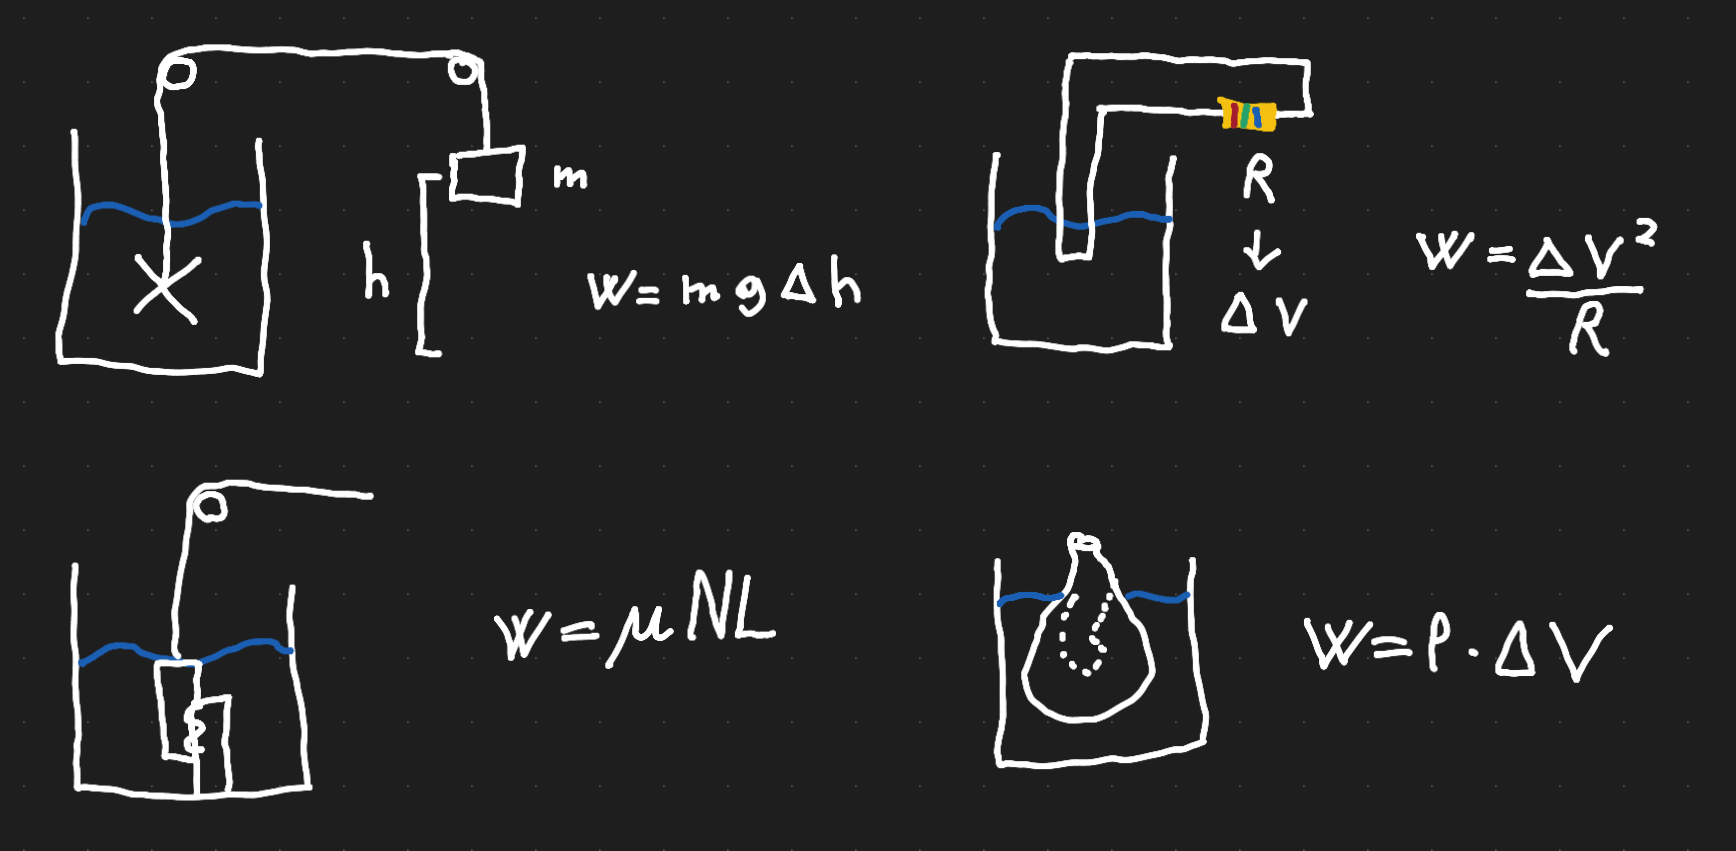 m
h
W = mgΔh
R
↓
ΔV
W = ΔV²/R
W = μNL
W = P · ΔV